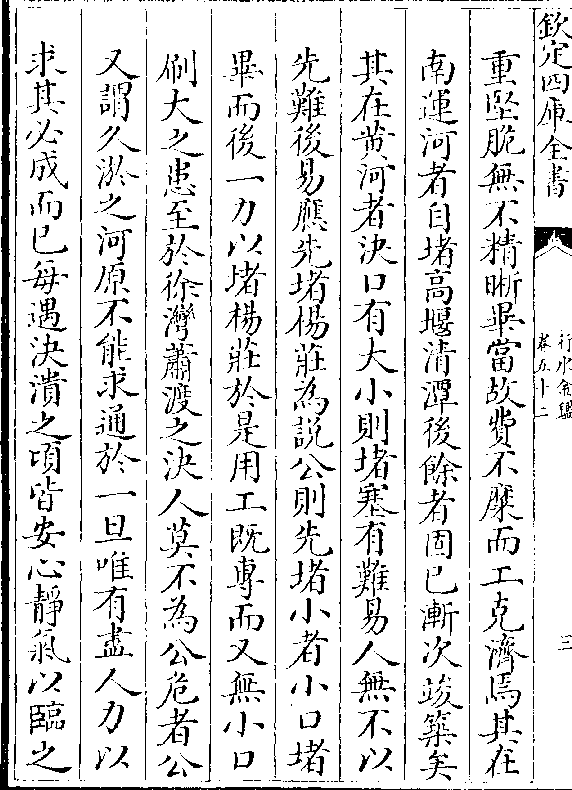 欽定四庫全書
行水金鑑
卷五十二
三
重堅脆無不精晰畢當故費不糜而工克濟焉其在
南運河者自堵高堰清潭後餘者固已漸次竣築矣
其在黄河者決口有大小則堵塞有難易人無不以
先難後易應先堵楊莊為説公則先堵小者小口堵
畢而後一力以堵楊莊於是用工既專而又無小口
刷大之患至於徐灣蕭渡之決人莫不為公危者公
又謂久淤之河原不能求通於一旦唯有盡人力以
求其必成而已每遇決潰之頃皆安心靜氣以臨之